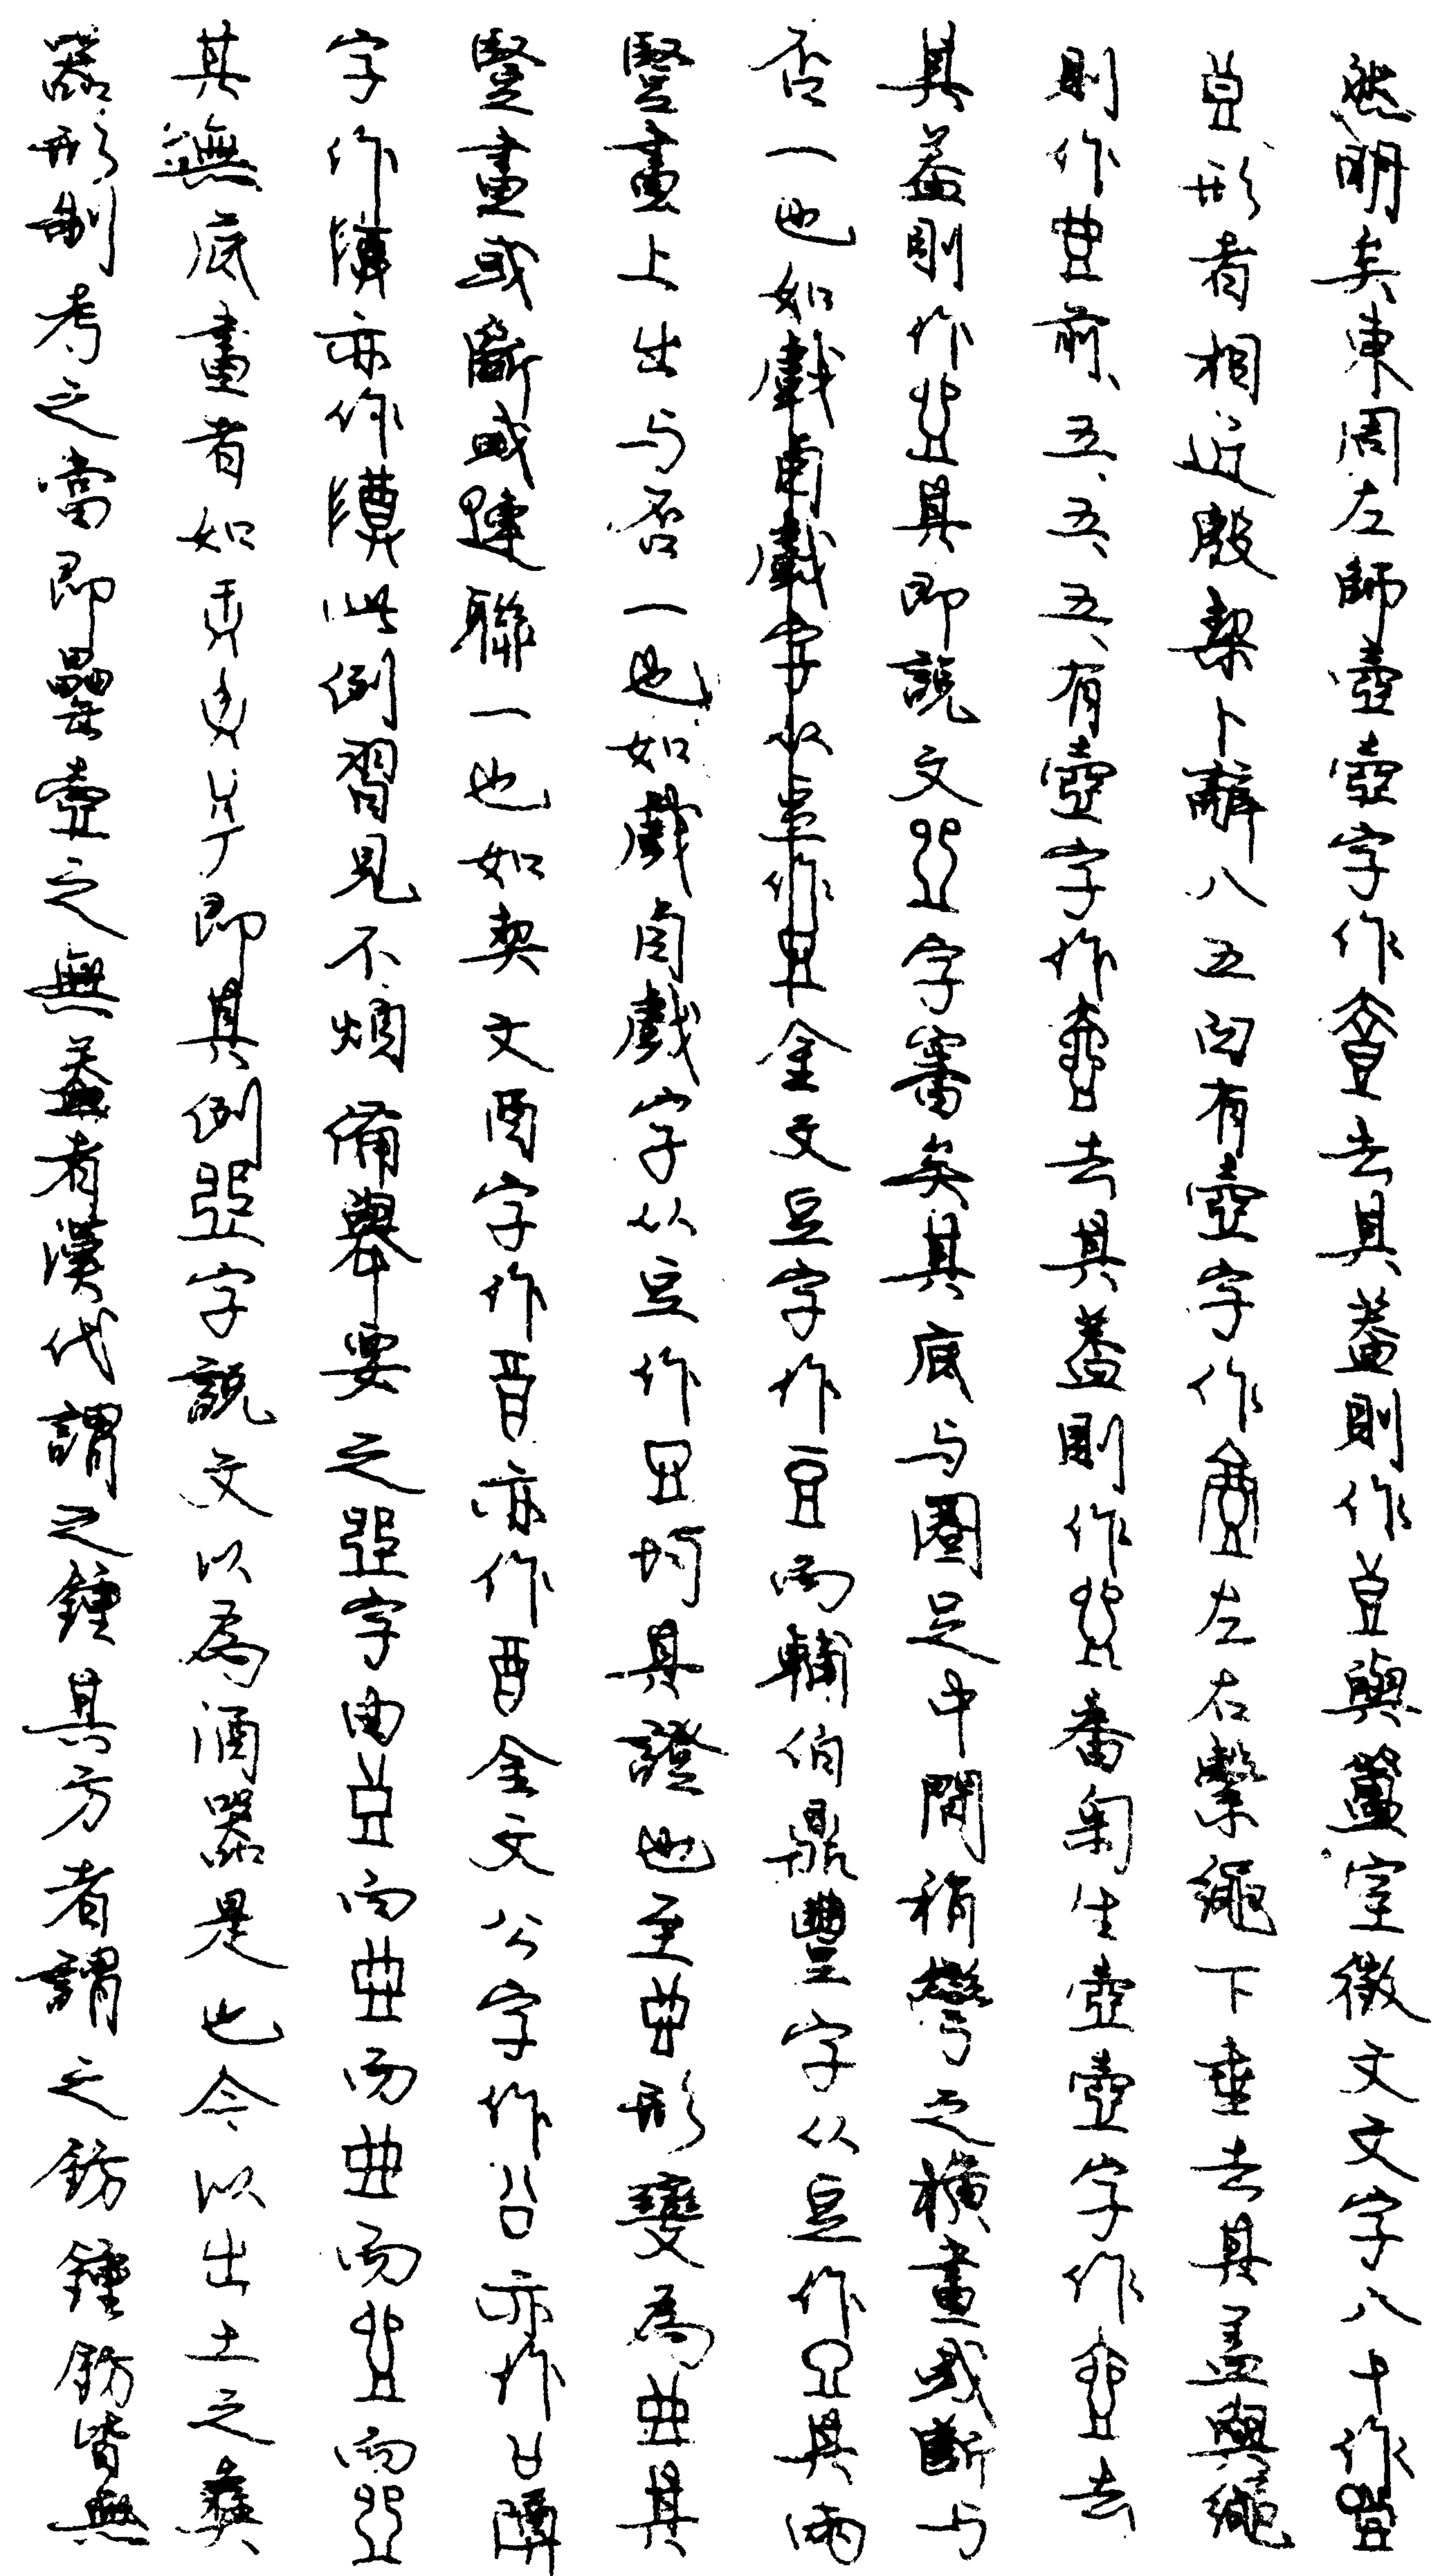 然明矣東周左師壺壺字作去其蓋則作與簠室徵文文字八十作
形者相近殷栔卜辭八五有壺字作左右繫繩下垂去其蓋與繩
則作前五五五有壺字作去其蓋則作番匊生壺壺字作去
其蓋則作其即說文字審矣其底与圈足中間稍彎之橫畫或斷与
否一也如金文豆字作豆而輔伯鼎豐字从豆作其兩
豎畫上出与否一也如戲卣戲字从豆作均其證也至形變為其
豎畫或斷或連聯一也如契文酉字作亦作酉金文公字作亦作
字作亦作此例習見不煩備舉要之字由而而而而
其無底畫者如即其例字說文以為酒器是也今以出土之彝
器形制考之當即罍壺之無蓋者漢代謂之鍾其方者謂之鈁鍾鈁皆無